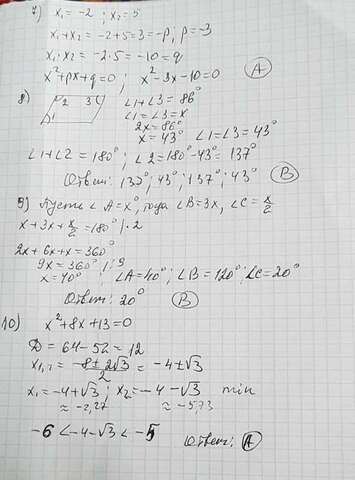 7) x₁ = -2 ; x₂ = 5
x₁+x₂ = -2+5 = 3 = -p, p = -3
x₁·x₂ = -2·5 = -10 = q
x²+px+q=0 ; x²-3x-10=0 (A)
8) 1 2 3 ∠1+∠3 = 86°
∠1 = ∠3 = x
2x = 86°
x = 43° ∠1=∠3=43°
∠1+∠2 = 180° ; ∠2 = 180°-43° = 137°
Ответ: 137°; 43°; 137°; 43° (B)
9) Пусть ∠A = x°, тогда ∠B = 3x, ∠C = x/2
x + 3x + x/2 = 180° |·2
2x + 6x + x = 360°
9x = 360° | :9
x = 40° ; ∠A = 40° ; ∠B = 120° ; ∠C = 20°
Ответ: 20° (B)
10) x²+8x+13=0
D = 64-52 = 12
x₁,₂ = (-8±2√3)/2 = -4±√3
x₁ = -4+√3 ; x₂ = -4-√3 min
≈ -2,27 ≈ -5,73
-6 < -4-√3 < -5 Ответ: (A)